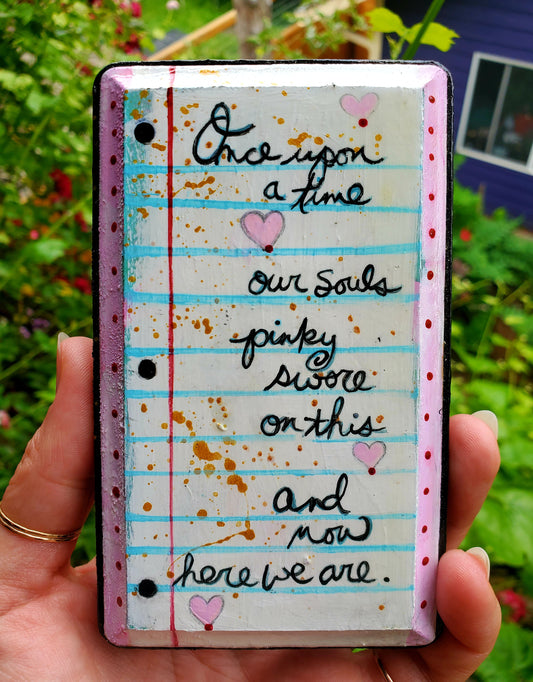 Once upon
a time
our souls
pinky
swore
on this
and
now
here we are.